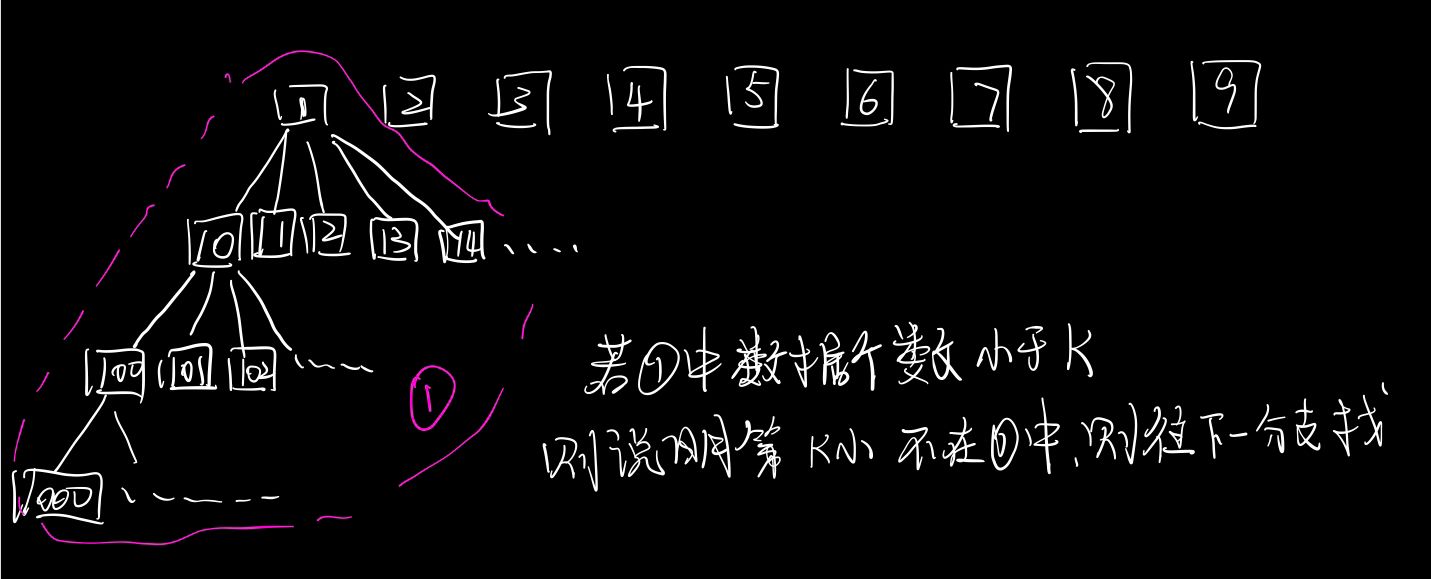 1 2 3 4 5 6 7 8 9
10 11 12 13 14 ....
100 101 102 ......
①
若①中数据个数小于K
则说明第K小不在①中,则往下一分支找
1000 .......